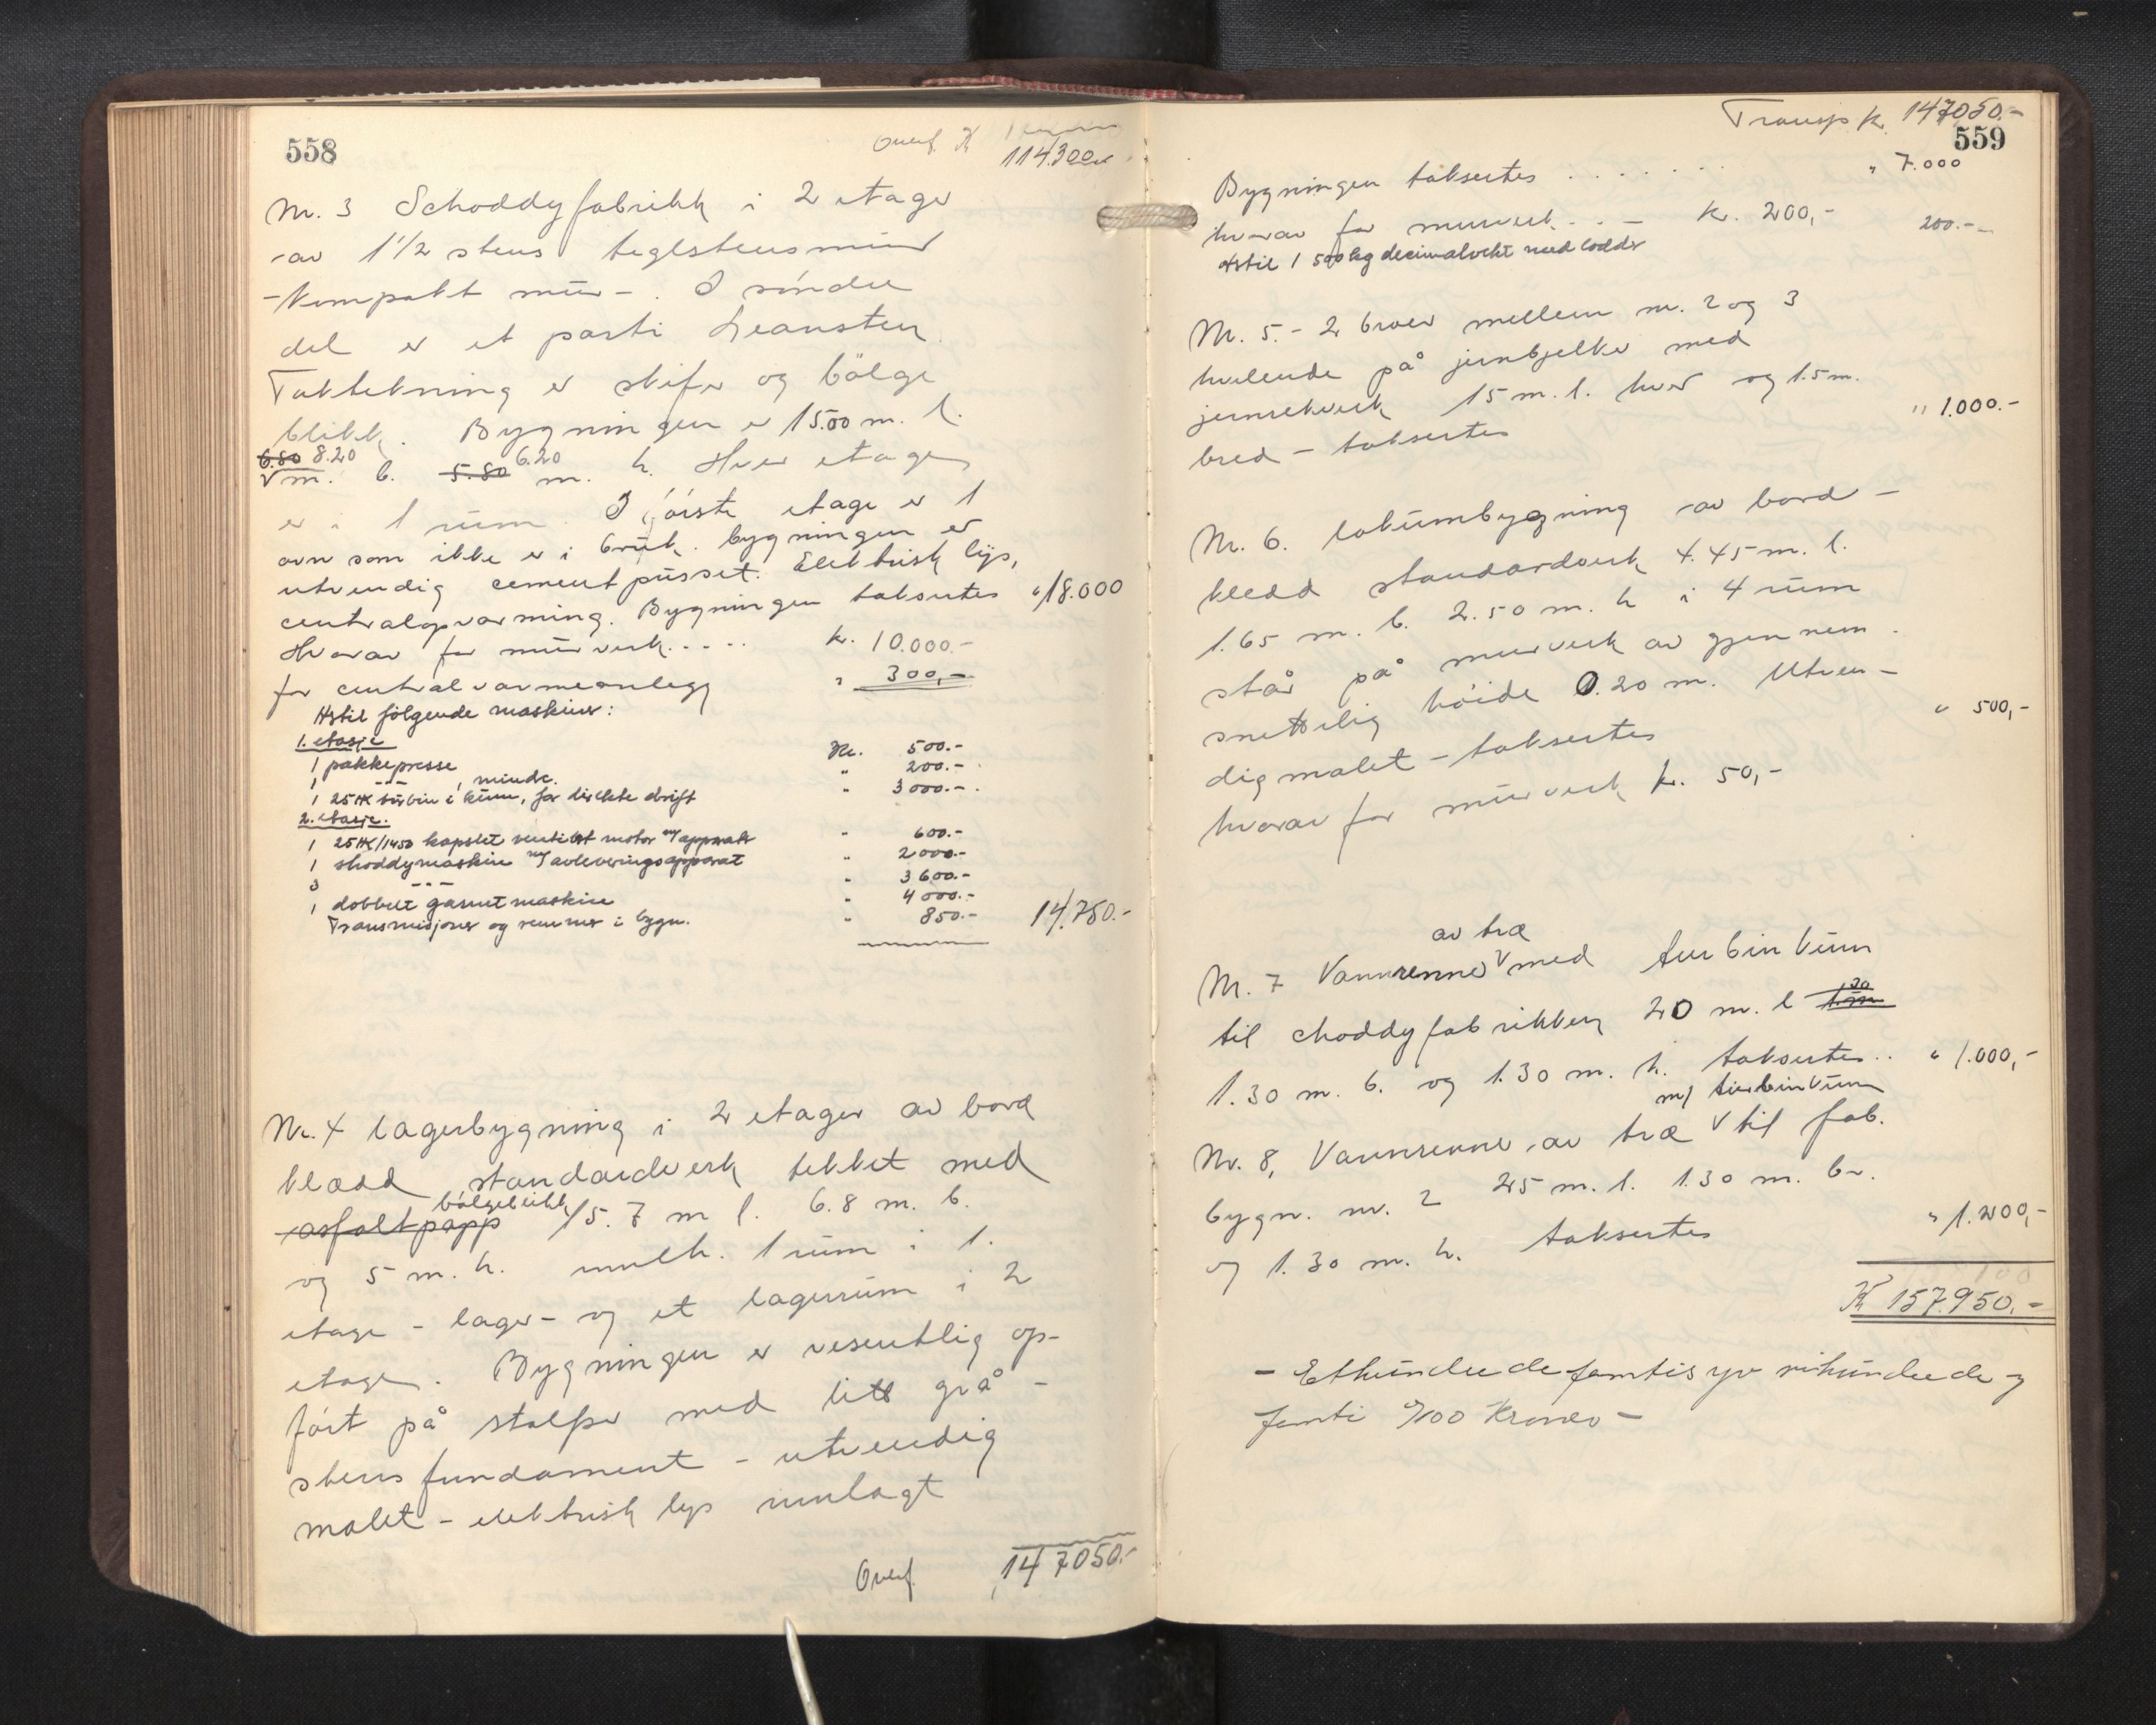 558
Overf. K
114.300.-
Nr. 3 Schoddyfabrikk i 2 etager
av 1 1/2 stens teglstensmur
- kompakt mur -. I søndre
del er et parti Leansten
Taktekning er skifer og bölge
blikk. Bygningen er 15.00 m. l.
6.80 8.20 6.20
m. b. 5.80 m. h. Hver etage
er i 1 rum. I første etage er 1
ovn som ikke er i bruk. bygningen er
utvendig cementpusset. Elektrisk lys,
centralopvarming. Bygningen taksertes " 18.000
Hvorav for murverk..... kr. 10.000.-
for centralvarmeanlegg " 300,-
Hertil følgende maskiner:
1. etasje
1 pakkepresse Kr. 500.-
1 -"- mindre " 200.-
1 25 HK turbin i kum, for direkte drift " 3000.-
2. etasje.
1 25 HK/1450 kapslet ventilert motor m/apparat " 600.-
1 shoddymaskin m/avleveringsapparat " 2000.-
3 -"- " 3600.-
1 dobbelt garnetmaskine " 4000.-
Transmisjoner og remmer i bygn. " 850.- 14.750.-
Nr. 4 Lagerbygning i 2 etager av bord
klædd standardverk tekket med
bölgeblikk
asfaltpapp 15.7 m l. 6.8 m. b.
og 5 m. h. innh. 1 rum i 1.
etage - lager - og et lagerrum i 2
etage. Bygningen er vesentlig op-
ført på stolper med litt grå-
stens fundament - utvendig
malet - elektrisk lys innlagt
Overf. 147050.-
Transp k. 147050.-
559
Bygningen taksertes ....... " 7.000
hvorav for murverk... - kr. 200,- 200.-
Hertil 1 500 kg decimalvekt med lodder
Nr. 5.- 2 broer mellem nr. 2 og 3
hvilende på jernbjelker med
jernrekverk 15 m. l. hver og 1.5 m.
bred - taksertes " 1.000.-
Nr. 6. lokumbygning av bord -
kledd standardverk 4.45 m. l.
1.65 m. b. 2.50 m. h i 4 rum
står på murverk av gjennem-
snittelig høide 0.20 m. Utven-
dig malet - taksertes " 500,-
hvorav for murverk kr. 50,-
av træ
Nr. 7 Vannrenne med turbinkum
til choddyfabrikken 20 m. l
1.30 m. b. og 1.30 m. h. taksertes.. " 1.000,-
m/ turbinkum
Nr. 8, Vannrenne av træ til fab.
bygn. nr. 2 25 m. l. 1.30 m. br.
og 1.30 m. h. taksertes " 1.200,-
K 157.950,-
- Ethundredefemtisyv nihundrede og
femti 0/100 Kroner -